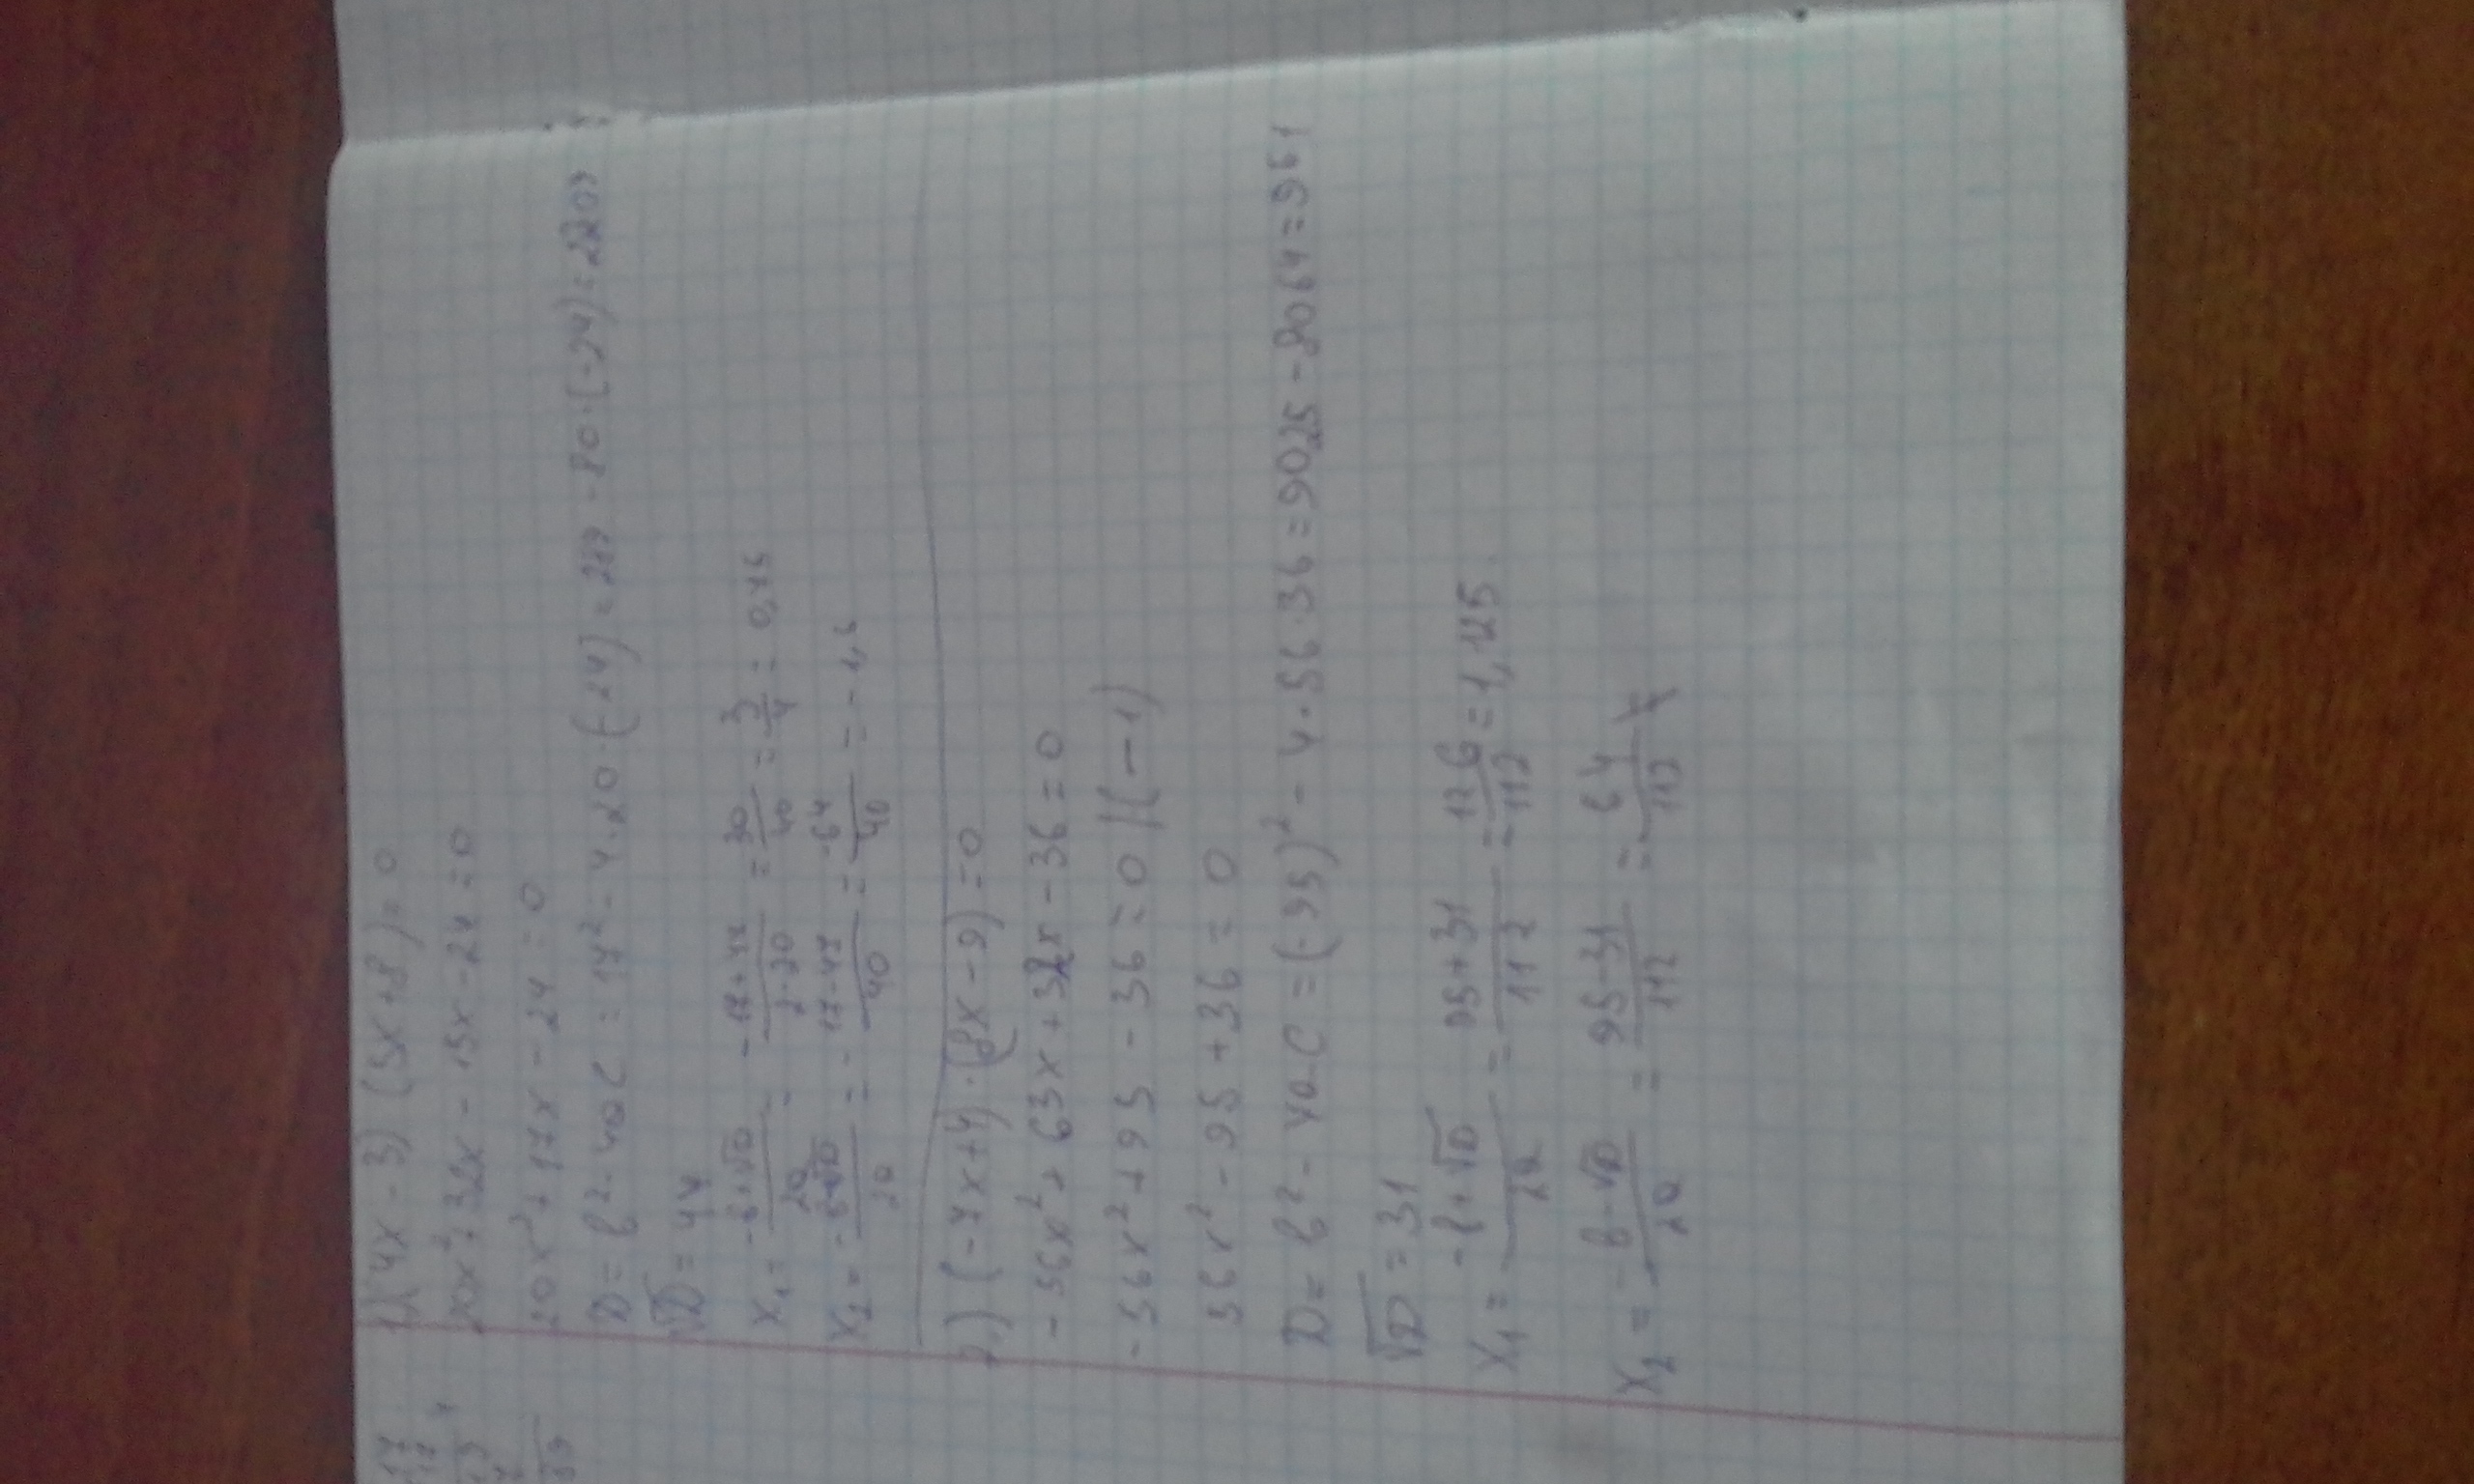 1) (4x - 3) (5x + 8) = 0
20x² + 32x - 15x - 24 = 0
20x² + 17x - 24 = 0
D = b² - 4ac = 17² - 4·20·(-24) = 289 - 80·(-24) = 2209
√D = 47
x₁ = (-b+√D)/2a = (-17+47)/(2·20) = 30/40 = 3/4 = 0,75
x₂ = (-b-√D)/2a = (-17-47)/40 = -64/40 = -1,6
2) (-7x+4)·(8x-9)=0
-56x² + 63x + 32x - 36 = 0
-56x² + 95 - 36 = 0 |(-1)
56x² - 95 + 36 = 0
D = b² - 4a·c = (-95)² - 4·56·36 = 9025 - 8064 = 961
√D = 31
x₁ = (-b+√D)/2a = (95+31)/112 = 126/112 = 1,125
x₂ = (-b-√D)/2a = (95-31)/112 = 64/112